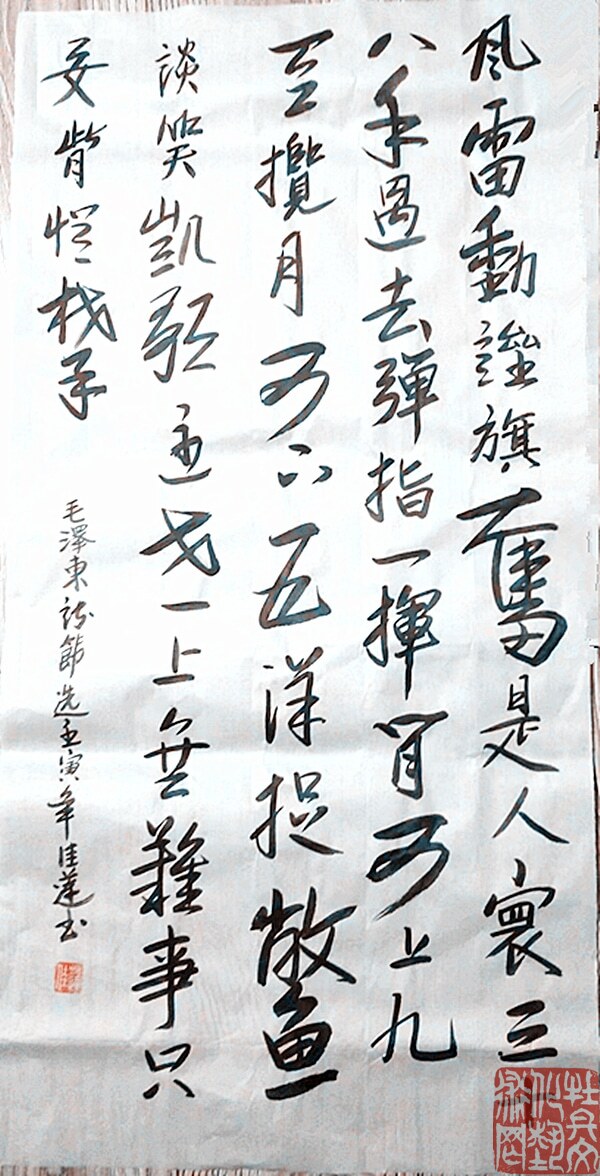 风雷動旌旗奮是人寰三十
八年過去彈指一揮間可上九
天攬月可下五洋捉鱉
談笑凱歌還世上無難事只
要肯登攀
毛澤東詩節選壬寅年佳蓮书